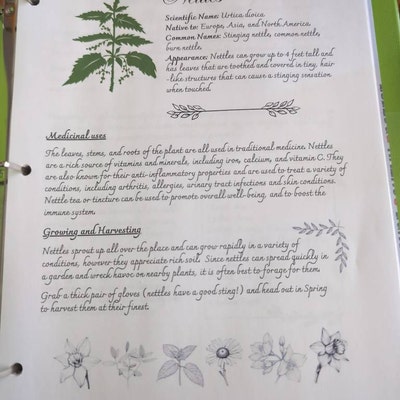 Scientific Name: Urtica dioica
Native to: Europe, Asia, and North America.
Common Names: Stinging nettle, common nettle,
burn nettle.
Appearance: Nettles can grow up to 4 feet tall and
has leaves that are toothed and covered in tiny, hair
-like structures that can cause a stinging sensation
when touched.
Medicinal uses
The leaves, stems, and roots of the plant are all used in traditional medicine. Nettles
are a rich source of vitamins and minerals, including iron, calcium, and vitamin C. They
are also known for their anti-inflammatory properties and are used to treat a variety of
conditions, including arthritis, allergies, urinary tract infections and skin conditions.
Nettle tea or tincture can be used to promote overall well-being, and to boost the
immune system.
Growing and Harvesting
Nettles sprout up all over the place and can grow rapidly in a variety of
conditions, however they appreciate rich soil. Since nettles can spread quickly in
a garden and wreck havoc on nearby plants, it is often best to forage for them.
Grab a thick pair of gloves (nettles have a good sting!) and head out in Spring
to harvest them at their finest.